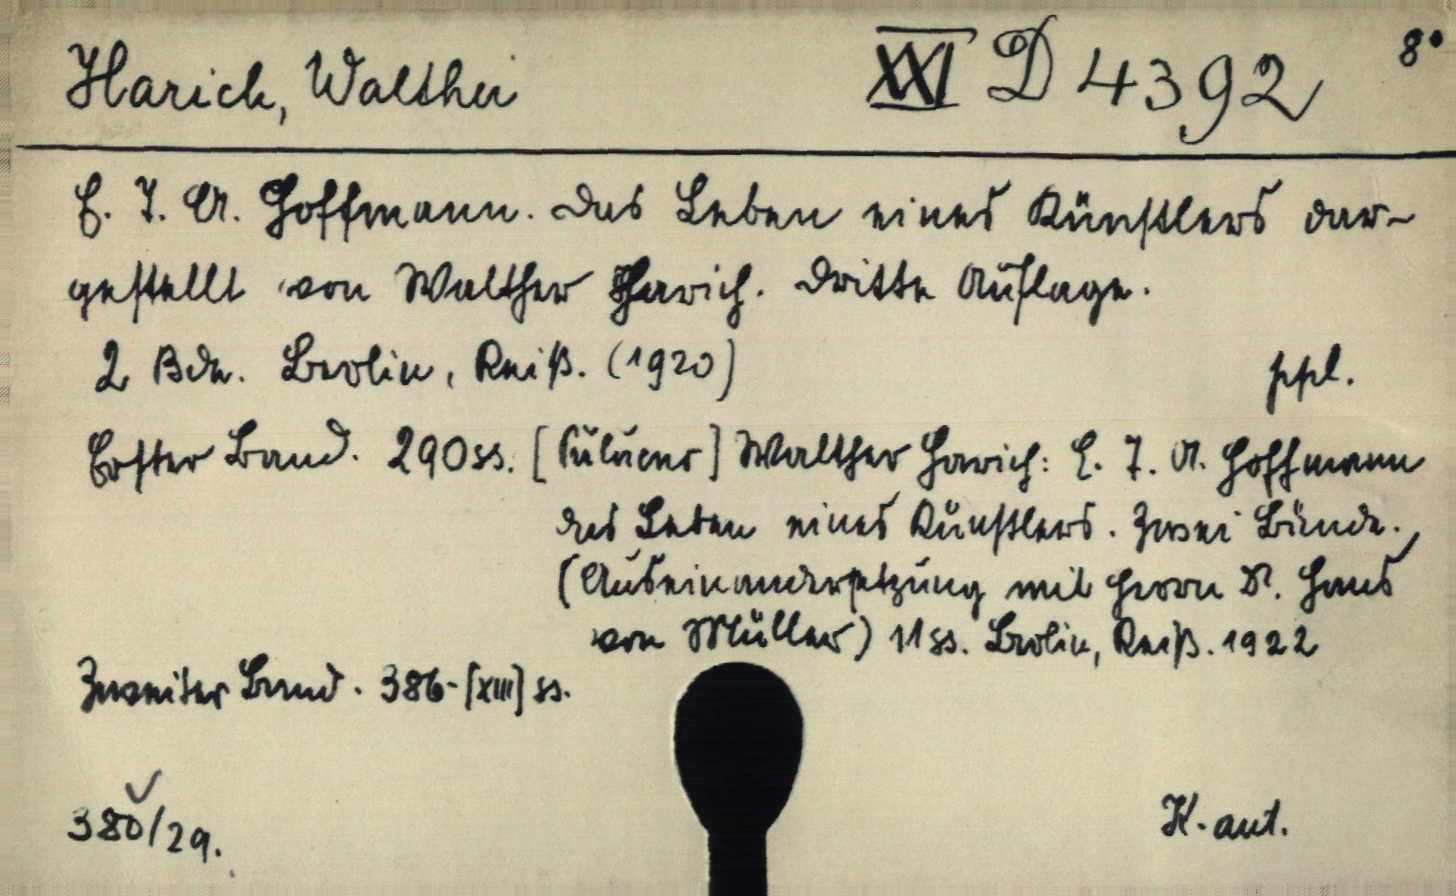 Harich, Walther XXI D 4392 8°
E. T. A. Hoffmann. Das Leben eines Künstlers dar-
gestellt von Walther Harich. Dritte Auflage.
2 Bde. Berlin, Reiß. (1920) ppl.
Erster Band. 290 ss. [ ] Walther Harich: E. T. A. Hoffmann
das Leben eines Künstlers. Zwei Bände.
(Auseinandersetzung mit Herrn Dr. Hans
von Müller) 11 ss. Berlin, Reiß. 1922
Zweiter Band. 386-[XIII] ss.
380/29. K. aut.